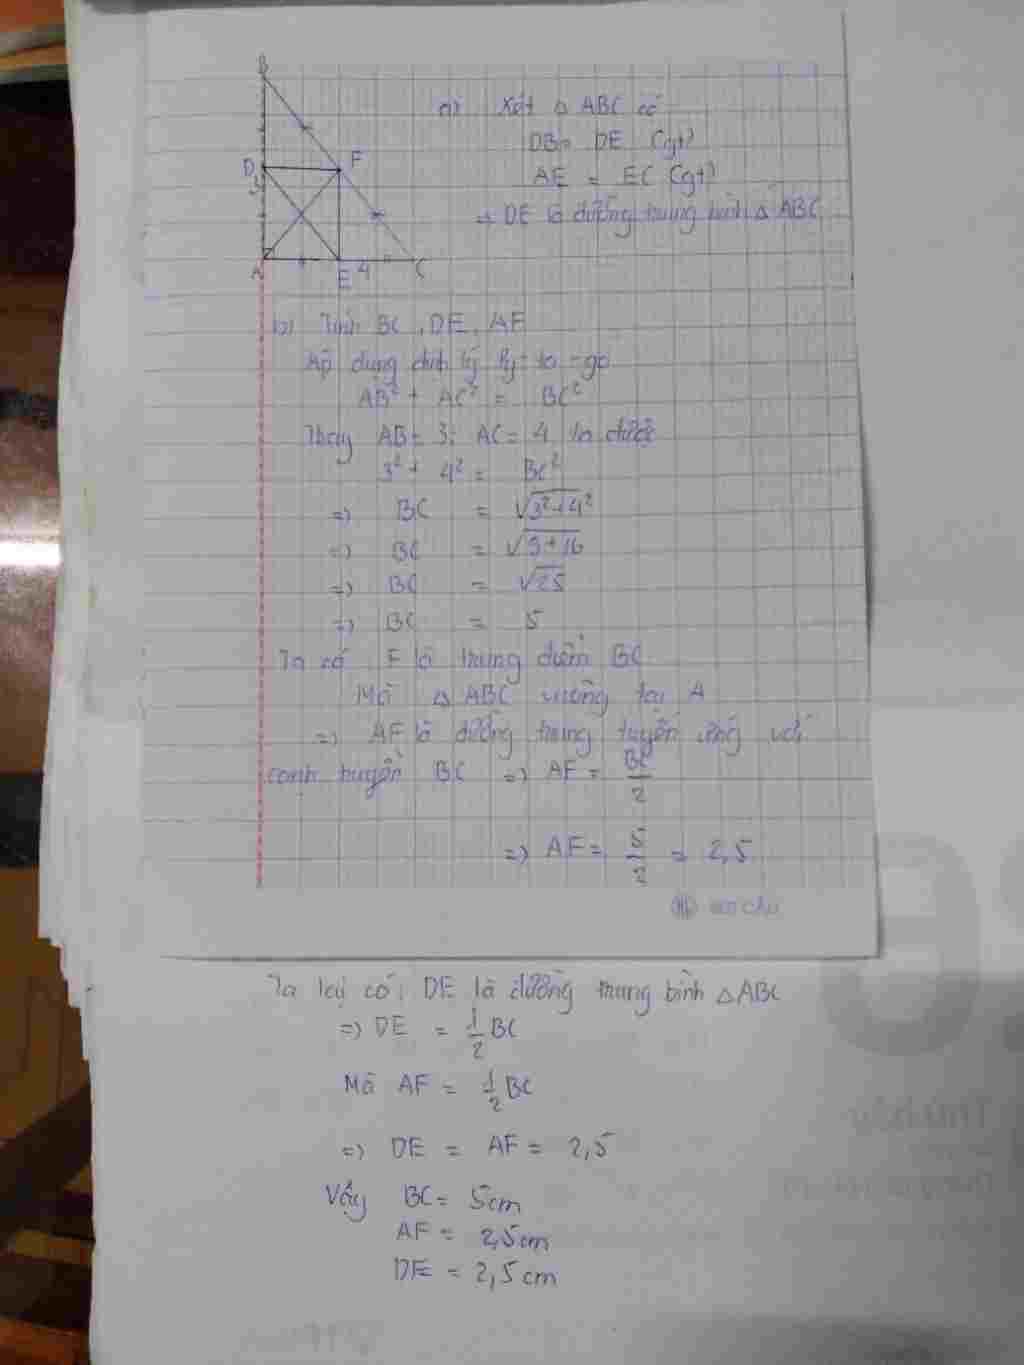 B
D
F
3
A
E
4
C
a) Xét △ ABC có
DB = DE (gt)
AE = EC (gt)
→ DE là đường trung bình △ ABC
b) Tính BC, DE, AF
Áp dụng định lý Py-ta-go
AB² + AC² = BC²
Thay AB = 3; AC = 4 ta được
3² + 4² = BC²
=> BC = √3²+4²
=> BC = √9+16
=> BC = √25
=> BC = 5
Ta có F là trung điểm BC
Mà △ ABC vuông tại A
=> AF là đường trung tuyến ứng với
cạnh huyền BC => AF = BC/2
=> AF = 5/2 = 2,5
Ta lại có: DE là đường trung bình △ABC
=> DE = 1/2 BC
Mà AF = 1/2 BC
=> DE = AF = 2,5
Vậy BC = 5cm
AF = 2,5cm
DE = 2,5cm